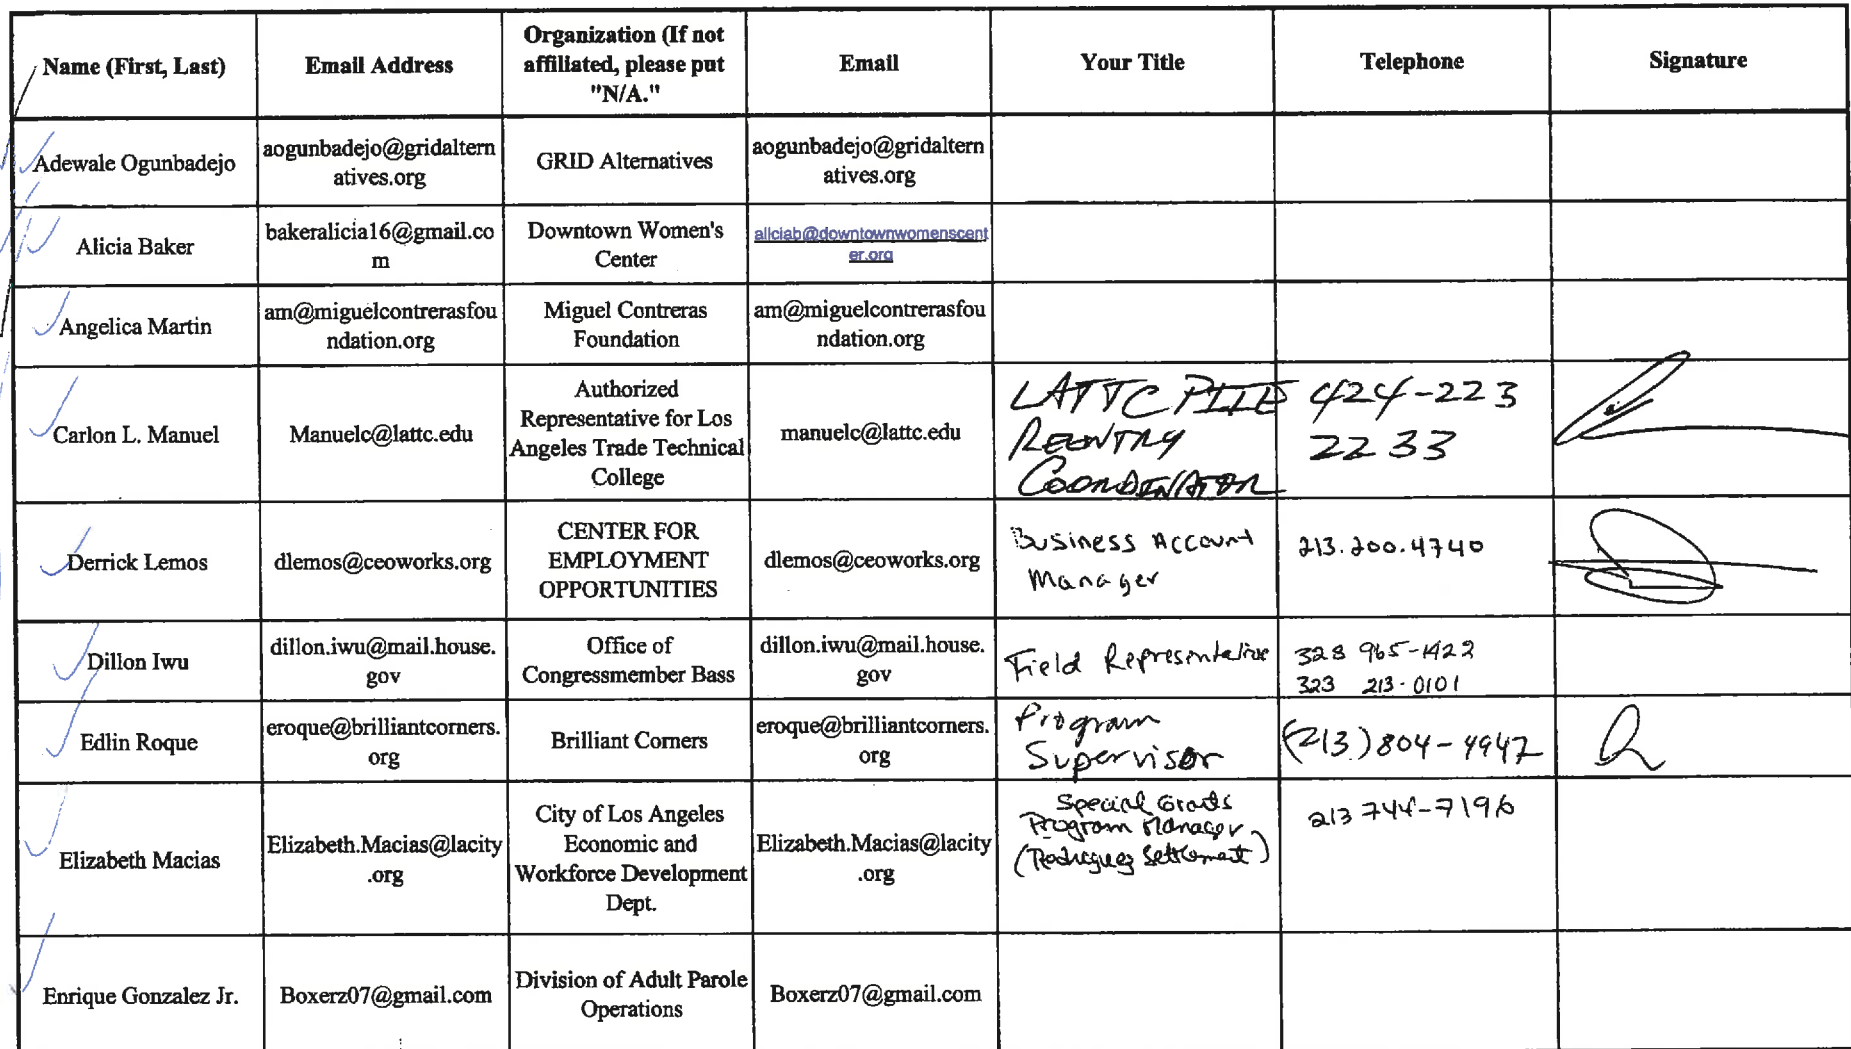 Name (First, Last)
Email Address
Organization (If not
affiliated, please put
"N/A."
Email
Your Title
Telephone
Signature
Adewale Ogunbadejo
aogunbadejo@gridaltern
atives.org
GRID Alternatives
aogunbadejo@gridaltern
atives.org
Alicia Baker
bakeralicia16@gmail.co
m
Downtown Women's
Center
aliciab@downtownwomenscent
er.org
Angelica Martin
am@miguelcontrerasfou
ndation.org
Miguel Contreras
Foundation
am@miguelcontrerasfou
ndation.org
Carlon L. Manuel
Manuelc@lattc.edu
Authorized
Representative for Los
Angeles Trade Technical
College
manuelc@lattc.edu
LATTC
REENTRY
COORDINATOR
424-223
2233
Derrick Lemos
dlemos@ceoworks.org
CENTER FOR
EMPLOYMENT
OPPORTUNITIES
dlemos@ceoworks.org
Business Account
Manager
213.200.4740
Dillon Iwu
dillon.iwu@mail.house.
gov
Office of
Congressmember Bass
dillon.iwu@mail.house.
gov
Field Representative
323 965-1422
323 213-0101
Edlin Roque
eroque@brilliantcorners.
org
Brilliant Corners
eroque@brilliantcorners.
org
Program
Supervisor
(213)804-4947
Elizabeth Macias
Elizabeth.Macias@lacity
.org
City of Los Angeles
Economic and
Workforce Development
Dept.
Elizabeth.Macias@lacity
.org
Special Grants
Program Manager
(Rodriguez Settlement)
213 744-7196
Enrique Gonzalez Jr.
Boxerz07@gmail.com
Division of Adult Parole
Operations
Boxerz07@gmail.com